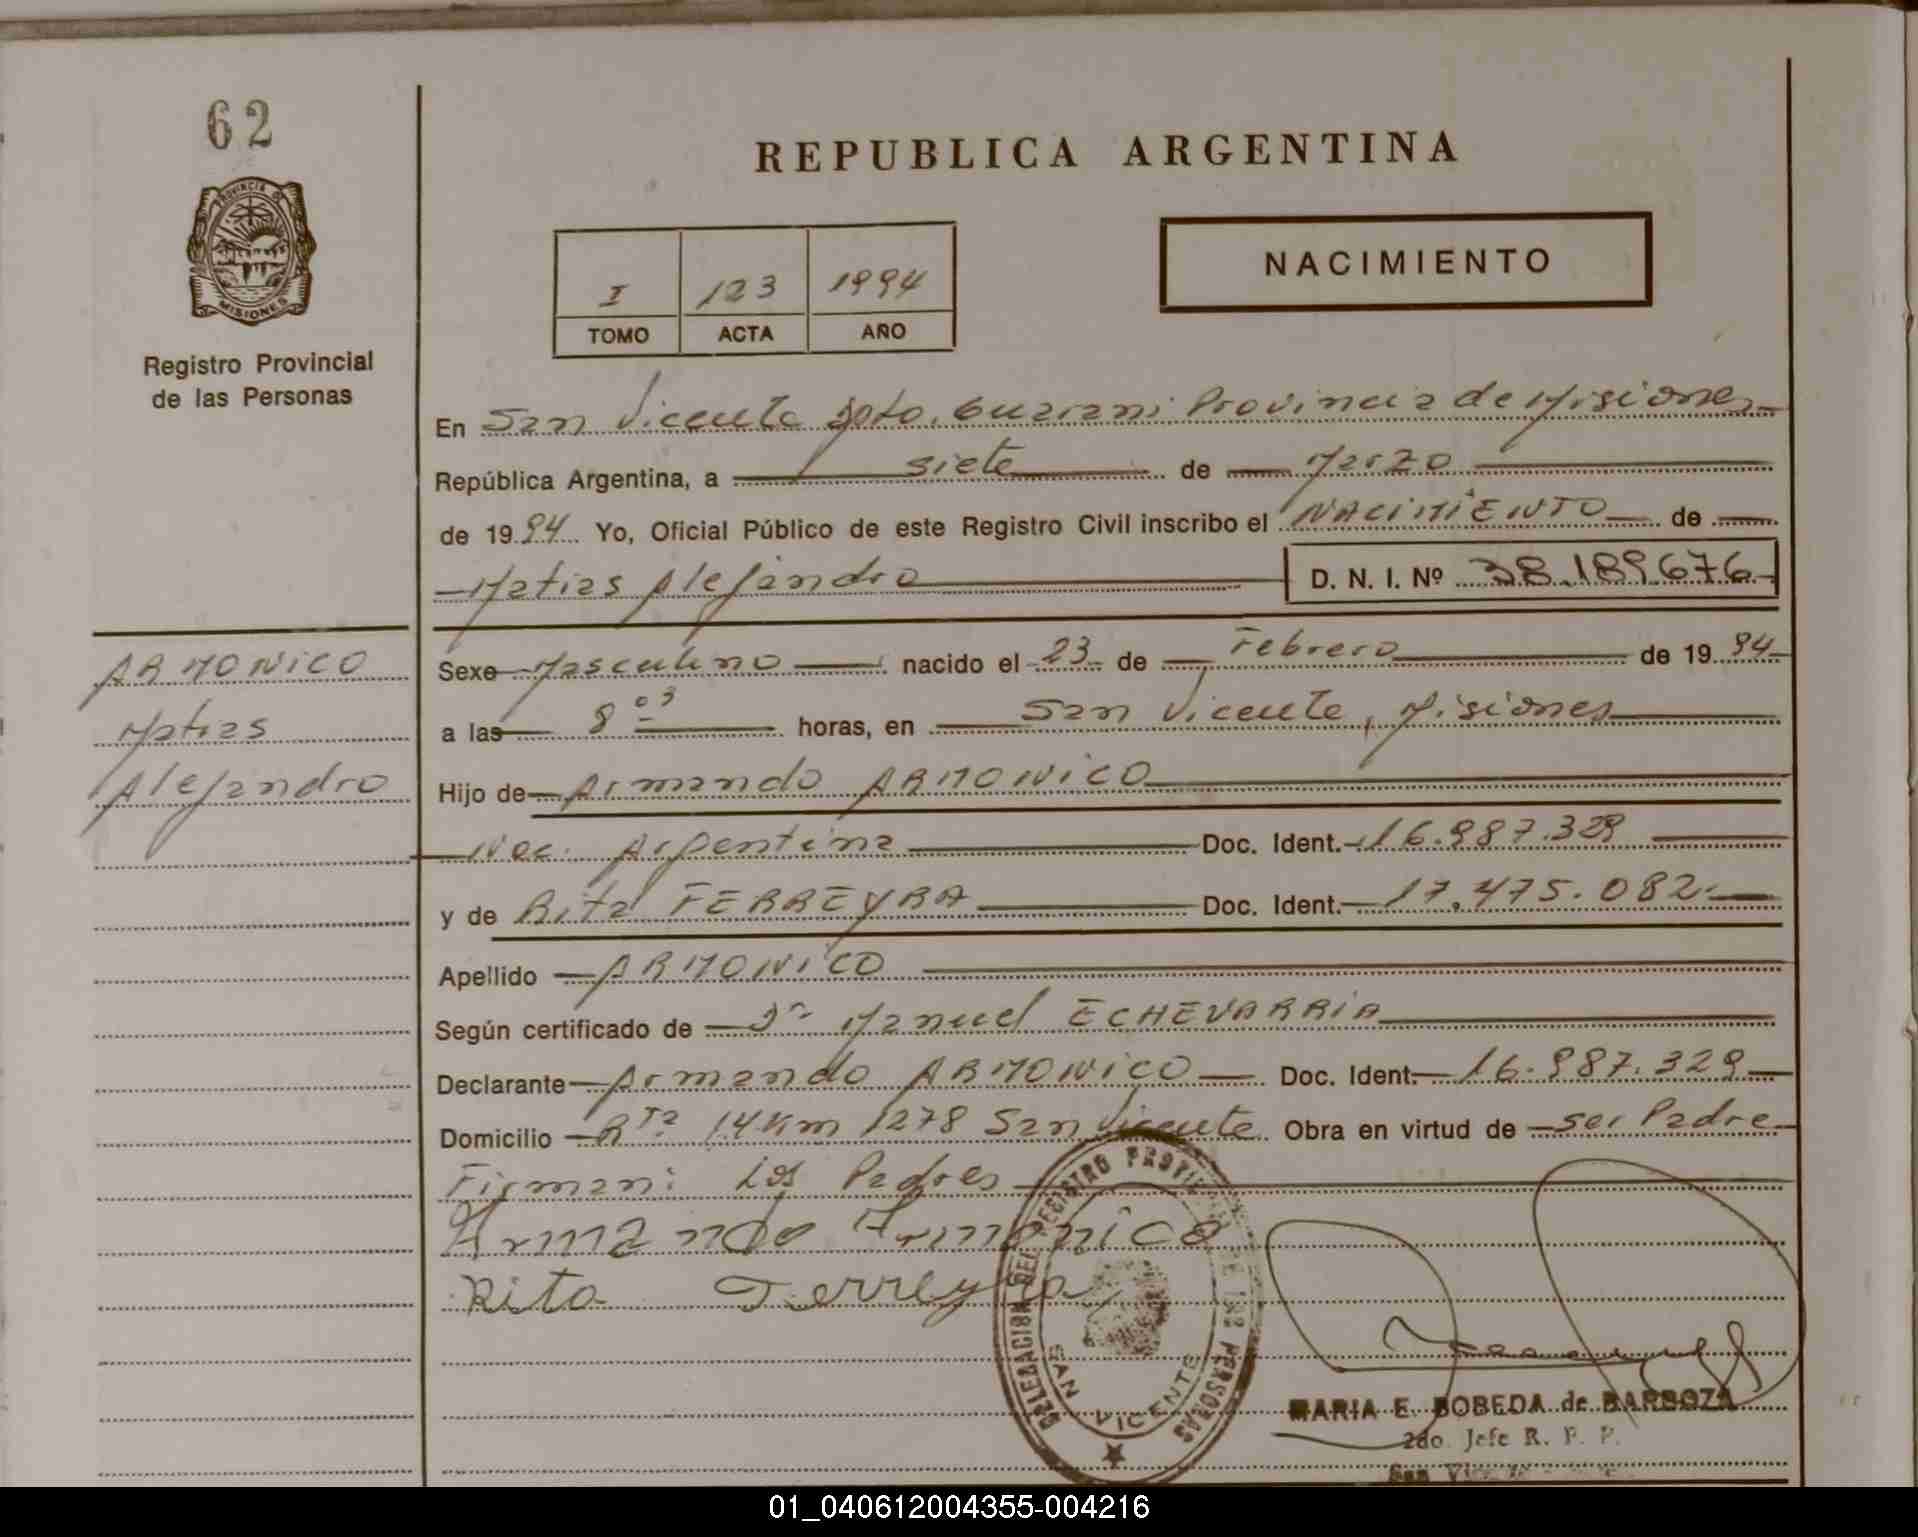 62
PROVINCIA DE
MISIONES
Registro Provincial
de las Personas
REPUBLICA ARGENTINA
NACIMIENTO
I 123 1994
TOMO ACTA AÑO
En San Vicente Dpto. Guarani Provincia de Misiones
República Argentina, a siete de Marzo
de 1994 Yo, Oficial Público de este Registro Civil inscribo el NACIMIENTO de
Matias Alejandro D. N. I. Nº 38.189.676
ARMONICO
Matias
Alejandro
Sexo Masculino nacido el 23 de Febrero de 1994
a las 8 03 horas, en San Vicente, Misiones
Hijo de Armando ARMONICO
Nac. Argentina Doc. Ident. 16.987.329
y de Rita FERREYRA Doc. Ident. 17.475.082.
Apellido ARMONICO
Según certificado de Dr Manuel ECHEVARRIA
Declarante Armando ARMONICO Doc. Ident. 16.987.329
Domicilio Rta 14 Km 1278 San Vicente Obra en virtud de ser Padre
Firman: Los Padres
Armando Armonico
Rita Ferreyra
DELEGACION DEL REGISTRO PROVINCIAL DE LAS PERSONAS
SAN VICENTE
MARIA E. BOBEDA de BARBOZA
2do. Jefe R. P. P.
San Vicente
01_040612004355-004216